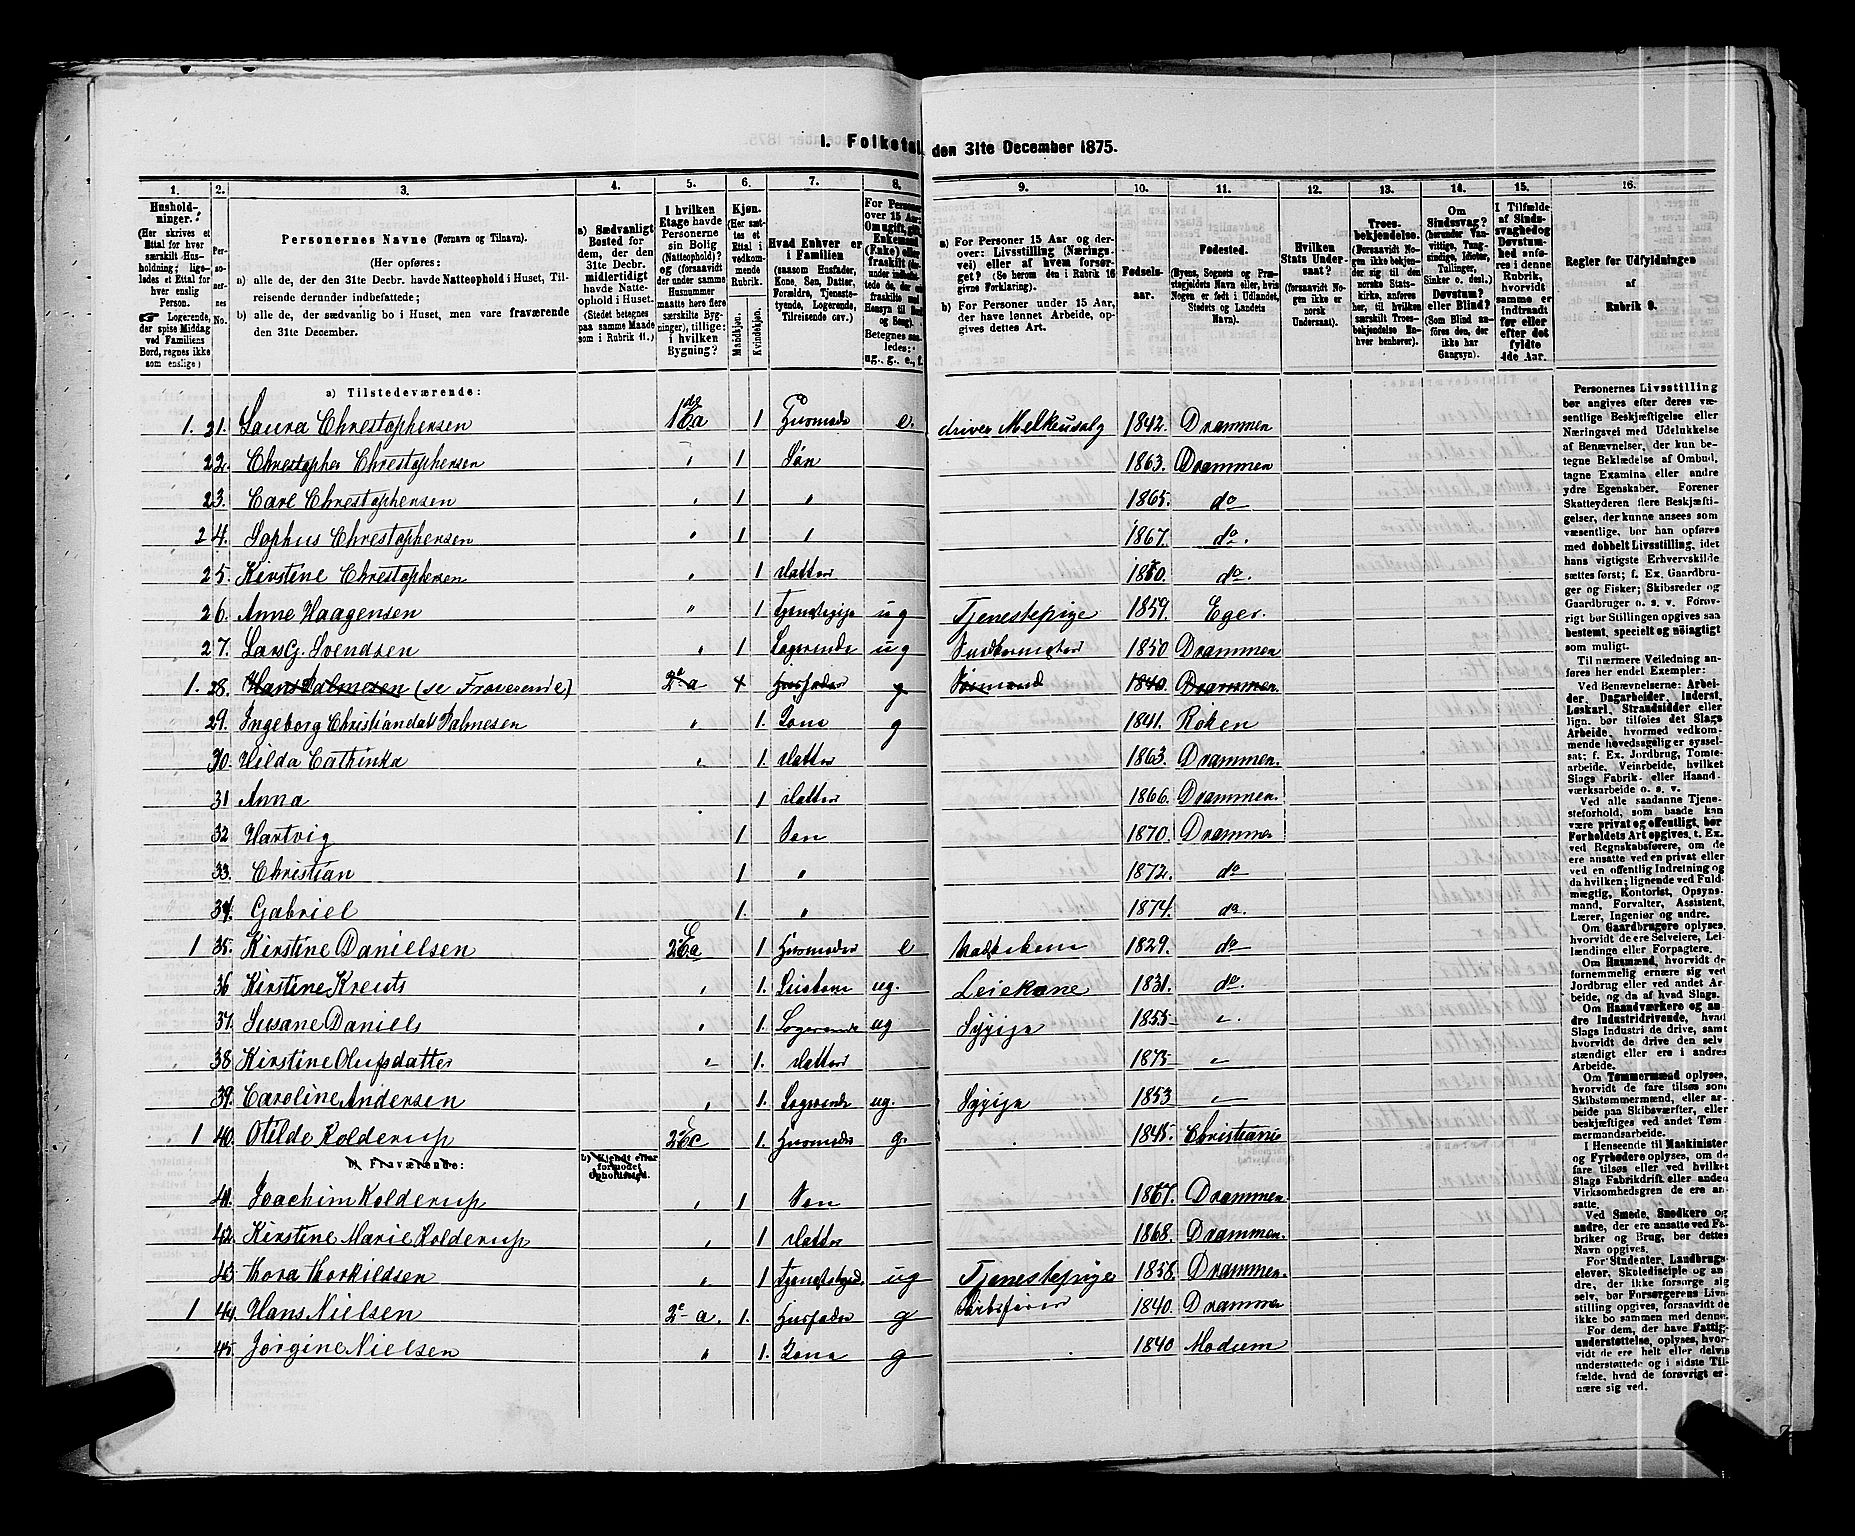 1. Folketal den 31te December 1875.
1. 2. 3. 4. 5. 6. 7. 8. 9. 10. 11. 12. 13. 14. 15. 16.
Hushold-
ninger.
(Her skrives et
Ettal for hver
særskilt Hus-
holdning; lige-
ledes et Ettal for
hver enslig
Person.
☞ Logerende,
der spise Middag
ved Familiens
Bord, regnes ikke
som enslige.)
Per-
so-
ner-
nes
No.
Personernes Navne (Fornavn og Tilnavn).
(Her opføres:
a) alle de, der den 31te Decbr. havde Natteophold i Huset, Til-
reisende derunder indbefattede;
b) alle de, der sædvanlig bo i Huset, men vare fraværende
den 31te December.
a) Sædvanligt
Bosted for
dem, der den
31te Decbr.
midlertidigt
havde Natte-
ophold i Huset.
(Stedet betegnes
paa samme Maade
som i Rubrik 11.)
I hvilken
Etage havde
Personerne
sin Bolig
(Natteophold)?
og (forsaavidt
der under samme
Husnummer
maatte høre flere
særskilte Byg-
ninger), tillige:
i hvilken
Bygning?
Kjøn.
(Her sæt-
tes et
Ettal i
vedkom-
mende
Rubrik.
Mandkjøn.
Kvindekjøn.
Hvad Enhver er
i Familien
(saasom Husfader,
Kone, Søn, Datter,
Forældre, Tjeneste-
tyende, Logerende,
Tilreisende osv.)
For Personer
over 15 Aar:
Om ugift, gift,
Enkemand
(Enke) eller
fraskilt
Betegnes saa-
ledes:
ug., g., e., f.
a) For Personer 15 Aar og der-
over: Livsstilling (Nærings-
vei) eller af hvem forsør-
get? (Se herom den i Rubrik 16
givne Forklaring).
b) For Personer under 15 Aar,
der have lønnet Arbeide, op-
gives dettes Art.
Fødsels-
aar.
Fødested.
(Byens, Sognets og Præ-
stegjeldets Navn eller, hvis
Nogen er født i Udlandet,
Stedets og Landets
Navn).
Hvilken
Stats Under-
saat?
(forsaavidt No-
gen ikke er
norsk
Undersaat).
Troes-
bekjendelse.
(Forsaavidt No-
gen ikke bekjen-
der sig til den
norske Stats-
kirke, anføres
her, til hvilken
særskilt Troes-
bekjendelse En-
hver henhører).
Om
Sindssvag?
(herunder Van-
vittige, Tung-
sindige, Idioter,
Tullinger,
Sinker o. desl.)
Døvstum?
eller Blind? (Her
anføres den, der
ikke har
Gangsyn).
I Tilfælde
af Sinds-
svaghed og
Døvstum-
hed anfø-
res i denne
Rubrik,
hvorvidt
samme er
indtraadt
før eller
efter det
fyldte
4de Aar.
Regler for Udfyldningen
af
Rubrik 9.
a) Tilstedeværende:
1. 21. Laura Chrestophersen 1de E a 1 Husmoder e. driver Melkeudsalg 1842. Drammen
22. Chrestopher Chrestophersen " 1 Søn 1863. Drammen
23. Carl Chrestophersen " 1 " 1865. do
24. Sophus Chrestophersen " 1 " 1867. do.
25. Kirstine Chrestophersen " 1 Datter 1870. do.
26. Anne Haagensen " 1 Tjenestepige ug Tjenestepige 1859. Eger.
27. Lars G. Svendsen " 1 Logerende ug 1850 Drammen
1. 28. Hans Dalmesen (se Fraverende) 2e a Husfader g Formand 1840. Drammen.
29. Ingeborg Christiandatt Dalmesen " 1. Kone g 1841. Røken
30. Hilda Cathinka " 1. Datter 1863. Drammen.
31 Anna 1 Datter 1866. Drammen.
32 Hartvig 1 Søn 1870. Drammen
33. Christian 1 " 1872. do
34. Gabriel 1. " 1874. do.
1 35. Kirstine Danielsen 2 E a 1 Husmoder e Vaskekone 1829. do
36 Kirstine Kreuts " 1. Leiekone ug. Leiekone 1831. do.
37. Susane Daniels " 1. Logerende ug Sypige 1855 "
38 Kirstine Olufsdatter " 1. Datter 1875 "
39. Caroline Andersen " 1. Logerende ug. Sypige 1853 "
1 40. Otilde Kolderup 2 E c 1. Husmoder g. 1845. Christiania
b) Fraværende: b) Kjendt eller
formodet
Opholdssted.
41. Joachim Kolderup " 1 Søn 1867. Drammen.
42. Kirstine Marie Kolderup " 1 Datter 1868. Drammen.
43. Thora Thorkildsen " 1 Tjenestepige ug Tjenestepige 1858. Drammen.
1 44. Hans Nielsen 2e a. 1. Husfader g 1840. Drammen
45. Jørgine Nielsen " 1. Kone g 1840 Modum
Personernes Livsstilling
bør angives efter deres væ-
sentlige Beskjæftigelse eller
Næringsvei med Udelukkelse
af Benævnelser, der kun be-
tegne Beklædelse af Ombud,
tagne Examina eller andre
ydre Egenskaber. Forener
Skatteyderen flere Beskjæfti-
gelser, der kunne ansees som
væsentlige, bør han opføres
med dobbelt Livsstilling, idet
hans vigtigste Erhvervskilde
sættes først; f. Ex. Gaardbru-
ger og Fisker; Skibsreder og
Gaardbruger o. s. v. Forøv-
rigt bør Stillingen opgives saa
bestemt, specielt og nøiagtigt
som muligt.
Til nærmere Veiledning an-
føres her endel Exempler:
Ved Benævnelserne: Arbei-
der, Dagarbeider, Inderst,
Løskarl, Strandsidder eller
lign. bør tilføies det Slags
Arbeide, hvormed vedkom-
mende hovedsagelig er syssel-
sat; f. Ex. Jordbrug, Tomte-
arbeide, Veiarbeide, hvilket
Slags Fabrik- eller Haand-
værksarbeide o. s. v.
Ved alle saadanne Tjene-
steforhold, som baade kan
være privat og offentligt, bør
Forholdets Art opgives, t. Ex.
ved Regnskabsførere, om de
ere ansatte ved en privat eller
en offentlig Indretning og
da hvilken; lignende ved Fuld-
mægtig, Kontorist, Opsyns-
mand, Forvalter, Assistent,
Lærer, Ingeniør og andre.
Om Gaardbrugere oplyses,
hvorvidt de ere Selveiere, Lei-
lændinge eller Forpagtere.
Om Husmænd, hvorvidt de
fornemmelig ernære sig ved
Jordbrug eller ved andet Ar-
beide, og da af hvad Slags.
Om Haandværkere og an-
dre Industridrivende, hvad
Slags Industri de drive, samt
hvorvidt de drive den selv-
stændigt eller ere i andres
Arbeide.
Om Tømmermænd oplyses,
hvorvidt de fare tilsøs som
Skibstømmermænd, eller ar-
beide paa Skibsværfter, eller
beskjæftiges ved andet Tøm-
mermandsarbeide.
I Henseende til Maskinister
og Fyrbødere oplyses, om de
fare tilsøs eller ved hvilket
Slags Fabrikdrift eller anden
Virksomhedsgren de ere an-
satte.
Ved Smede, Snedkere og
andre, der ere ansatte ved Fa-
briker og Brug, bør dettes
Navn opgives.
For Studenter, Landbrugs-
elever, Skoledisciple og an-
dre, der ikke forsørge sig
selv, bør Forsørgerens Livs-
stilling opgives, forsaavidt de
ikke bo sammen med denne.
For dem, der have Fattig-
understøttelse, oplyses, hvor-
vidt de ere helt eller delvis
understøttede og i sidste Til-
fælde, hvad de forøvrigt er-
nære sig ved.